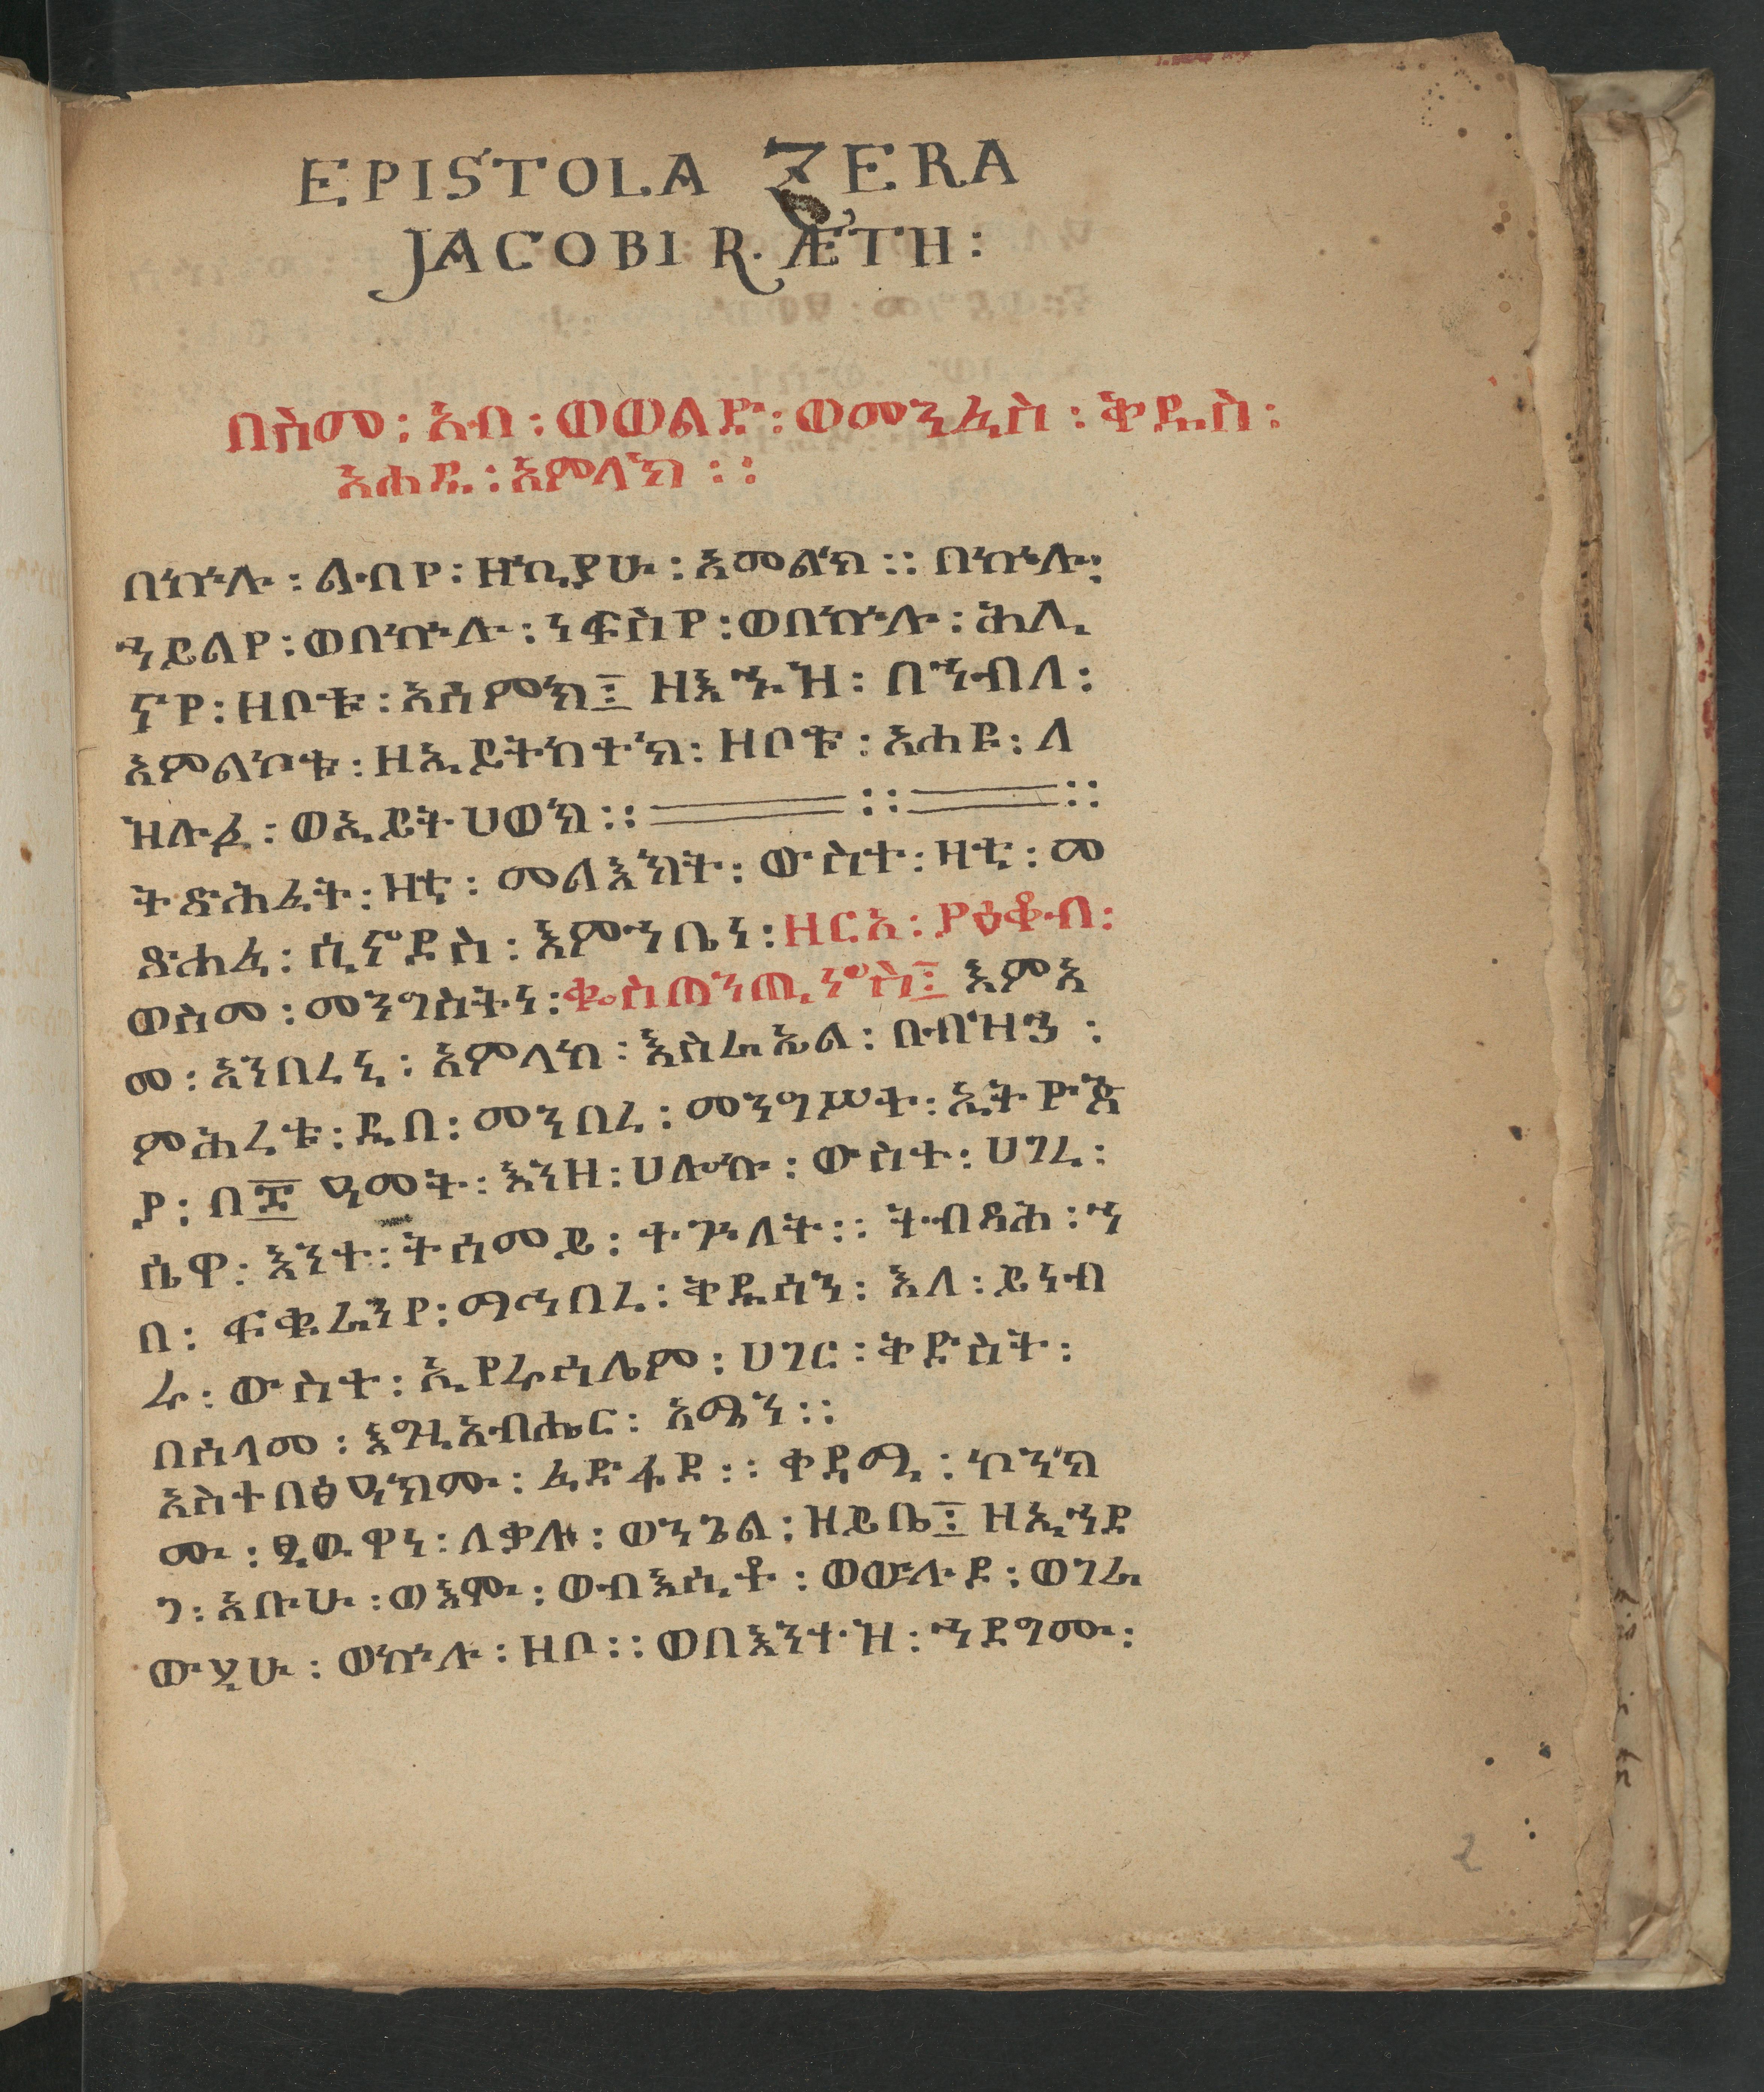 EPISTOLA ZERA
JACOBI R. ÆTH:
በስመ፡ አብ፡ ወወልድ፡ ወመንፈስ፡ ቅዱስ፡
አሐዱ፡ አምላክ፡፡
በኵሉ፡ ልብየ፡ ዘኪያሁ፡ አመልክ፡፡ በኵሉ፡
ኀይልየ፡ ወበኵሉ፡ ነፍስየ፡ ወበኵሉ፡ ሕሊ
ናየ፡ ዘቦቱ፡ አሰምክ፤ ዘእኁዝ፡ በኀብለ፡
አምልኮቱ፡ ዘኢይትከተክ፡ ዘቦቱ፡ አሐዩ፡ ለ
ዝሉፉ፡ ወኢይትሀወክ፡፡ ፡፡ ፡፡
ትጽሕፈት፡ ዛቲ፡ መልእክት፡ ውስተ፡ ዛቲ፡ መ
ጽሐፈ፡ ሲኖዶስ፡ እምኀቤነ፡ ዘርአ፡ ያዕቆብ፡
ወስመ፡ መንግስትነ፡ ቈስጠንጢኖስ፤ እምአ
መ፡ አንበረኒ፡ አምላከ፡ እስራኤል፡ በብዝኀ፡
ምሕረቱ፡ ዲበ፡ መንበረ፡ መንግሥተ፡ ኢትዮጵ
ያ፡ በ፰ ዓመት፡ እንዘ፡ ሀሎኩ፡ ውስተ፡ ሀገረ፡
ሴዋ፡ እንተ፡ ትሰመይ፡ ተጕለት፡፡ ትብዳሕ፡ ኀ
በ፡ ፍቁራንየ፡ ማኅበረ፡ ቅዱሳን፡ እለ፡ ይነብ
ሩ፡ ውስተ፡ ኢየሩሳሌም፡ ሀገር፡ ቅድስት፡
በሰላመ፡ እግዚአብሔር፡ አሜን፡፡
አስተበፅዓክሙ፡ ፈድፋደ፡፡ ቀዳሚ፡ ኮንክ
ሙ፡ ፂውዋነ፡ ለቃሉ፡ ወንጌል፡ ዘይቤ፤ ዘኢኀደ
ገ፡ አቡሁ፡ ወእሙ፡ ወብእሲቶ፡ ወውሉደ፡ ወገራ
ውሂሁ፡ ወኵሉ፡ ዘቦ፡፡ ወበእንተዝ፡ ኀደግሙ፡
2